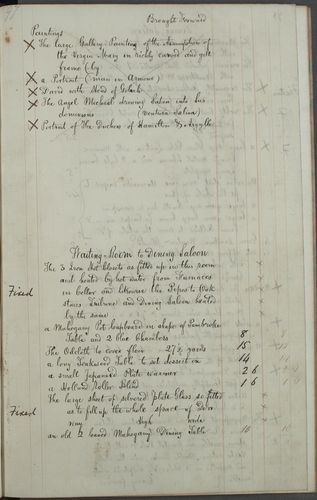 Brought Forward
Paintings
X The large Gallery Painting of the Assumption of
the Virgin Mary in richly carved and gilt
frame (by
X a Portrait (man in Armour)
X David with Head of Goliath
X The Angel Michael driving Satan into his
dominions (Ventura Salina)
X Portrait of the Duchess of Hamilton & Argylle
Waiting-Room to Dining Saloon
The 3 Iron Hot Closets as fitted up in this room
and heated by hot water from Furnaces
in Cellar and likewise the Pipes to Oak
stairs Tribune and Dining Saloon heated
Fixed by the same
a Mahogany Pot Cupboard in shape of Pembroke
Table and 2 blue Chambers 8
The Oilcloth to cover floor 27½ yards 15
a long Teakwood Table to set dessert on 14
a small Japanned Plate warmer 2 6
a Holland Roller Blind 1 6
The large sheet of silvered plate Glass so fitted
Fixed as to fill up the whole space of Door
way high wide
an old 2 leaved Mahogany Dining Table 10